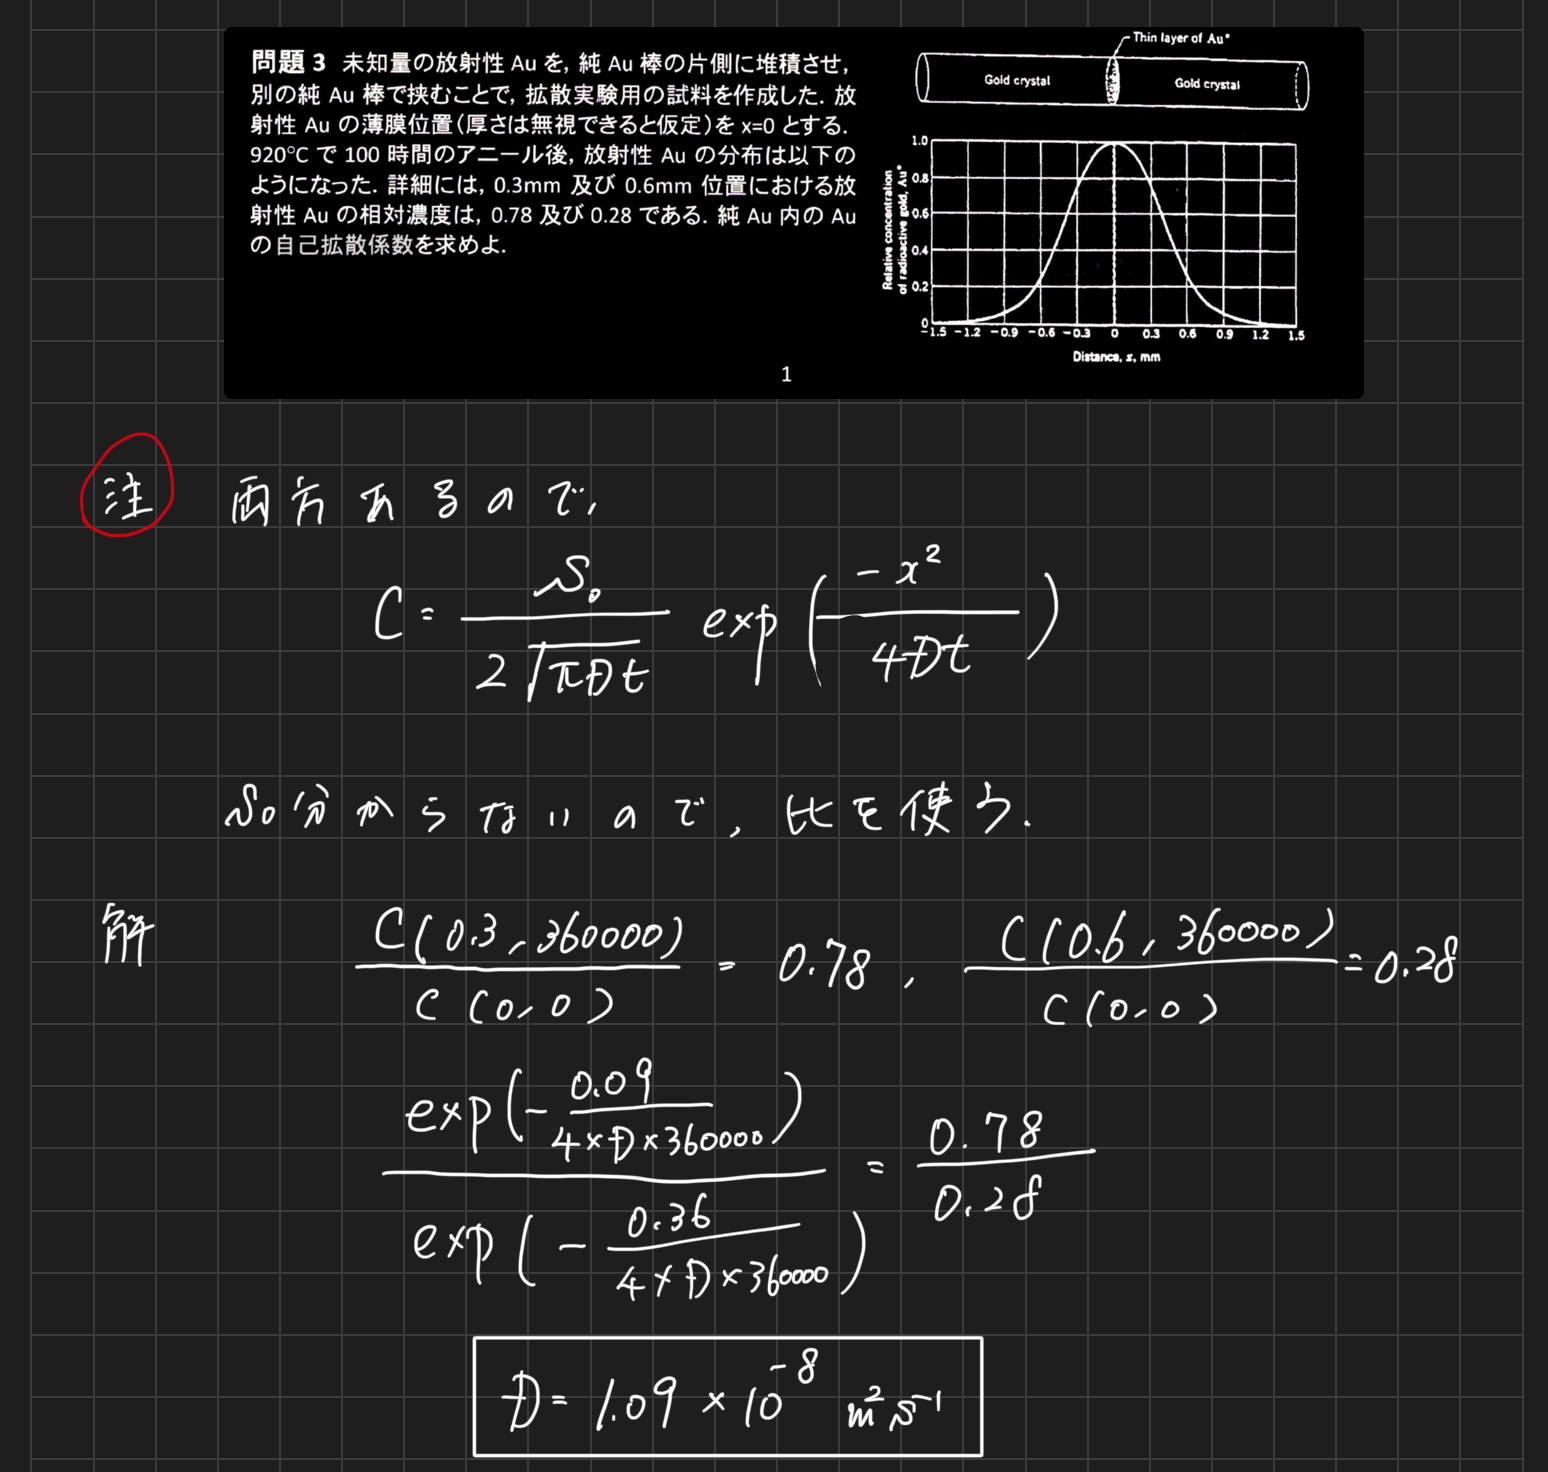 問題3 未知量の放射性 Au を, 純 Au 棒の片側に堆積させ,
別の純 Au 棒で挟むことで, 拡散実験用の試料を作成した. 放
射性 Au の薄膜位置(厚さは無視できると仮定)を x=0 とする.
920°C で 100 時間のアニール後, 放射性 Au の分布は以下の
ようになった. 詳細には, 0.3mm 及び 0.6mm 位置における放
射性 Au の相対濃度は, 0.78 及び 0.28 である. 純 Au 内の Au
の自己拡散係数を求めよ.
Thin layer of Au*
Gold crystal
Gold crystal
Relative concentration
of radioactive gold, Au*
1.0
0.8
0.6
0.4
0.2
0
-1.5 -1.2 -0.9 -0.6 -0.3 0 0.3 0.6 0.9 1.2 1.5
Distance, x, mm
1
注 両方あるので,
C = S₀ / 2√πDt exp(-x² / 4Dt)
S₀分からないので, 比を使う.
解 C(0.3, 360000) / C(0, 0) = 0.78, C(0.6, 360000) / C(0, 0) = 0.28
exp(-0.09 / 4×D×360000) / exp(-0.36 / 4×D×360000) = 0.78 / 0.28
D = 1.09 × 10⁻⁸ m² s⁻¹